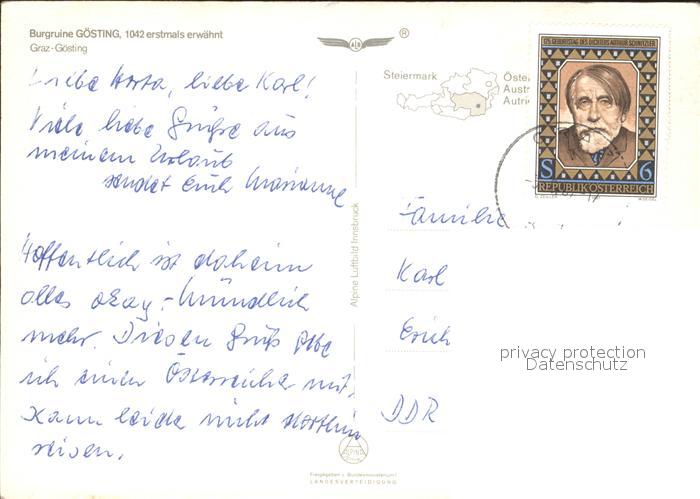 Burgruine GÖSTING, 1042 erstmals erwähnt
Graz-Gösting
Liebe Herta, liebe Karl!
Viele liebe Grüße aus
meinem Urlaub
sendet Euch Marianne
Hoffentlich ist daheim
alles okay. - Mündlich
mehr. Diesen Gruß gebe
ich einem Österreicher mit,
kann leider nicht dorthin
reisen.
Alpine Luftbild Innsbruck
®
Steiermark
Öste
Austr
Autri
175. GEBURTSTAG DES DICHTERS ARTHUR SCHNITZLER
S 6
REPUBLIK ÖSTERREICH
Familie
Karl
Erich
DDR
privacy protection
Datenschutz
ALPINE
Freigegeben v. Bundesministerium f.
LANDESVERTEIDIGUNG